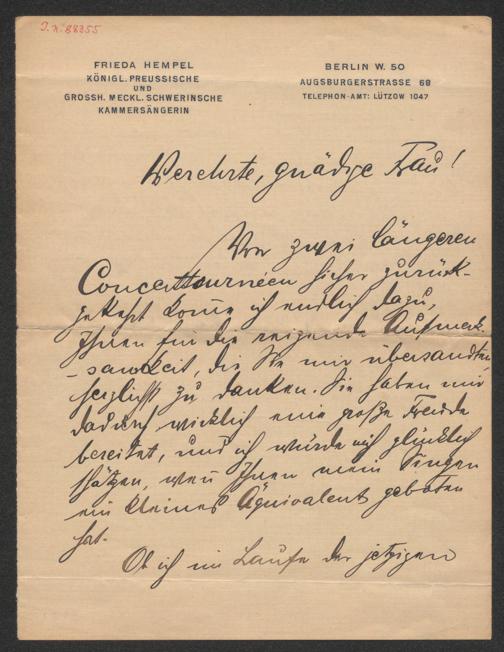 J. N. 88355
FRIEDA HEMPEL
KÖNIGL. PREUSSISCHE
UND
GROSSH. MECKL. SCHWERINSCHE
KAMMERSÄNGERIN
BERLIN W. 50
AUGSBURGERSTRASSE 68
TELEPHON-AMT: LÜTZOW 1047
Verehrte, gnädige Frau!
Von zwei längeren
Concerttournéen hieher zurück-
gekehrt kom̅e ich endlich dazu,
Ihnen für die reizende Aufmerk-
-samkeit, die Sie mir übersandten
herzlichst zu danken. Sie haben mir
dadurch wirklich eine große Freude
bereitet, und ich würde mich glücklich
schätzen, wen̅ Ihnen mein Singen
ein kleines Äquivalent geboten
hat.
Ob ich im Laufe der jetzigen